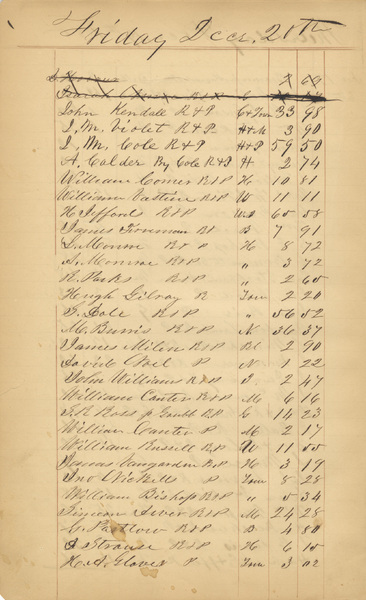 Friday Decr. 20th
John Kendall R & P C & Town 33 98
I. M. Violet R & P. H & M 3 90
I. M. Cole R & P H & P 59 50
A. Calder By Cole R & P H 2 74
William Comer R & P H 10 81
William Vastine R & P W 11 11
H. Jifford R & P
James Foreman B 7 91
S. Monroe R & P H 8 72
A. Monroe R & P " 3 72
R. Parks R & P " 2 65
Hugh Gilroy R Town 2 20
T. Dole R & P " 56 52
M. Burris R & P N 36 37
James Milen R & P Bl 2 90
David Noel P N 1 22
John Williams R & P B 2 47
William Canter R & P M 6 16
R & P C 14 23
William Canter P M 2 17
William Russell R & P W 11 55
James R & P H 3 19
Jno Nickell P Town 8 28
William Bishop R & P " 5 34
Simeon R & P M 24 28
C. Partlow R & P B 4 80
Strause R & P H 6 10
H. A. Glover P Town 3 02